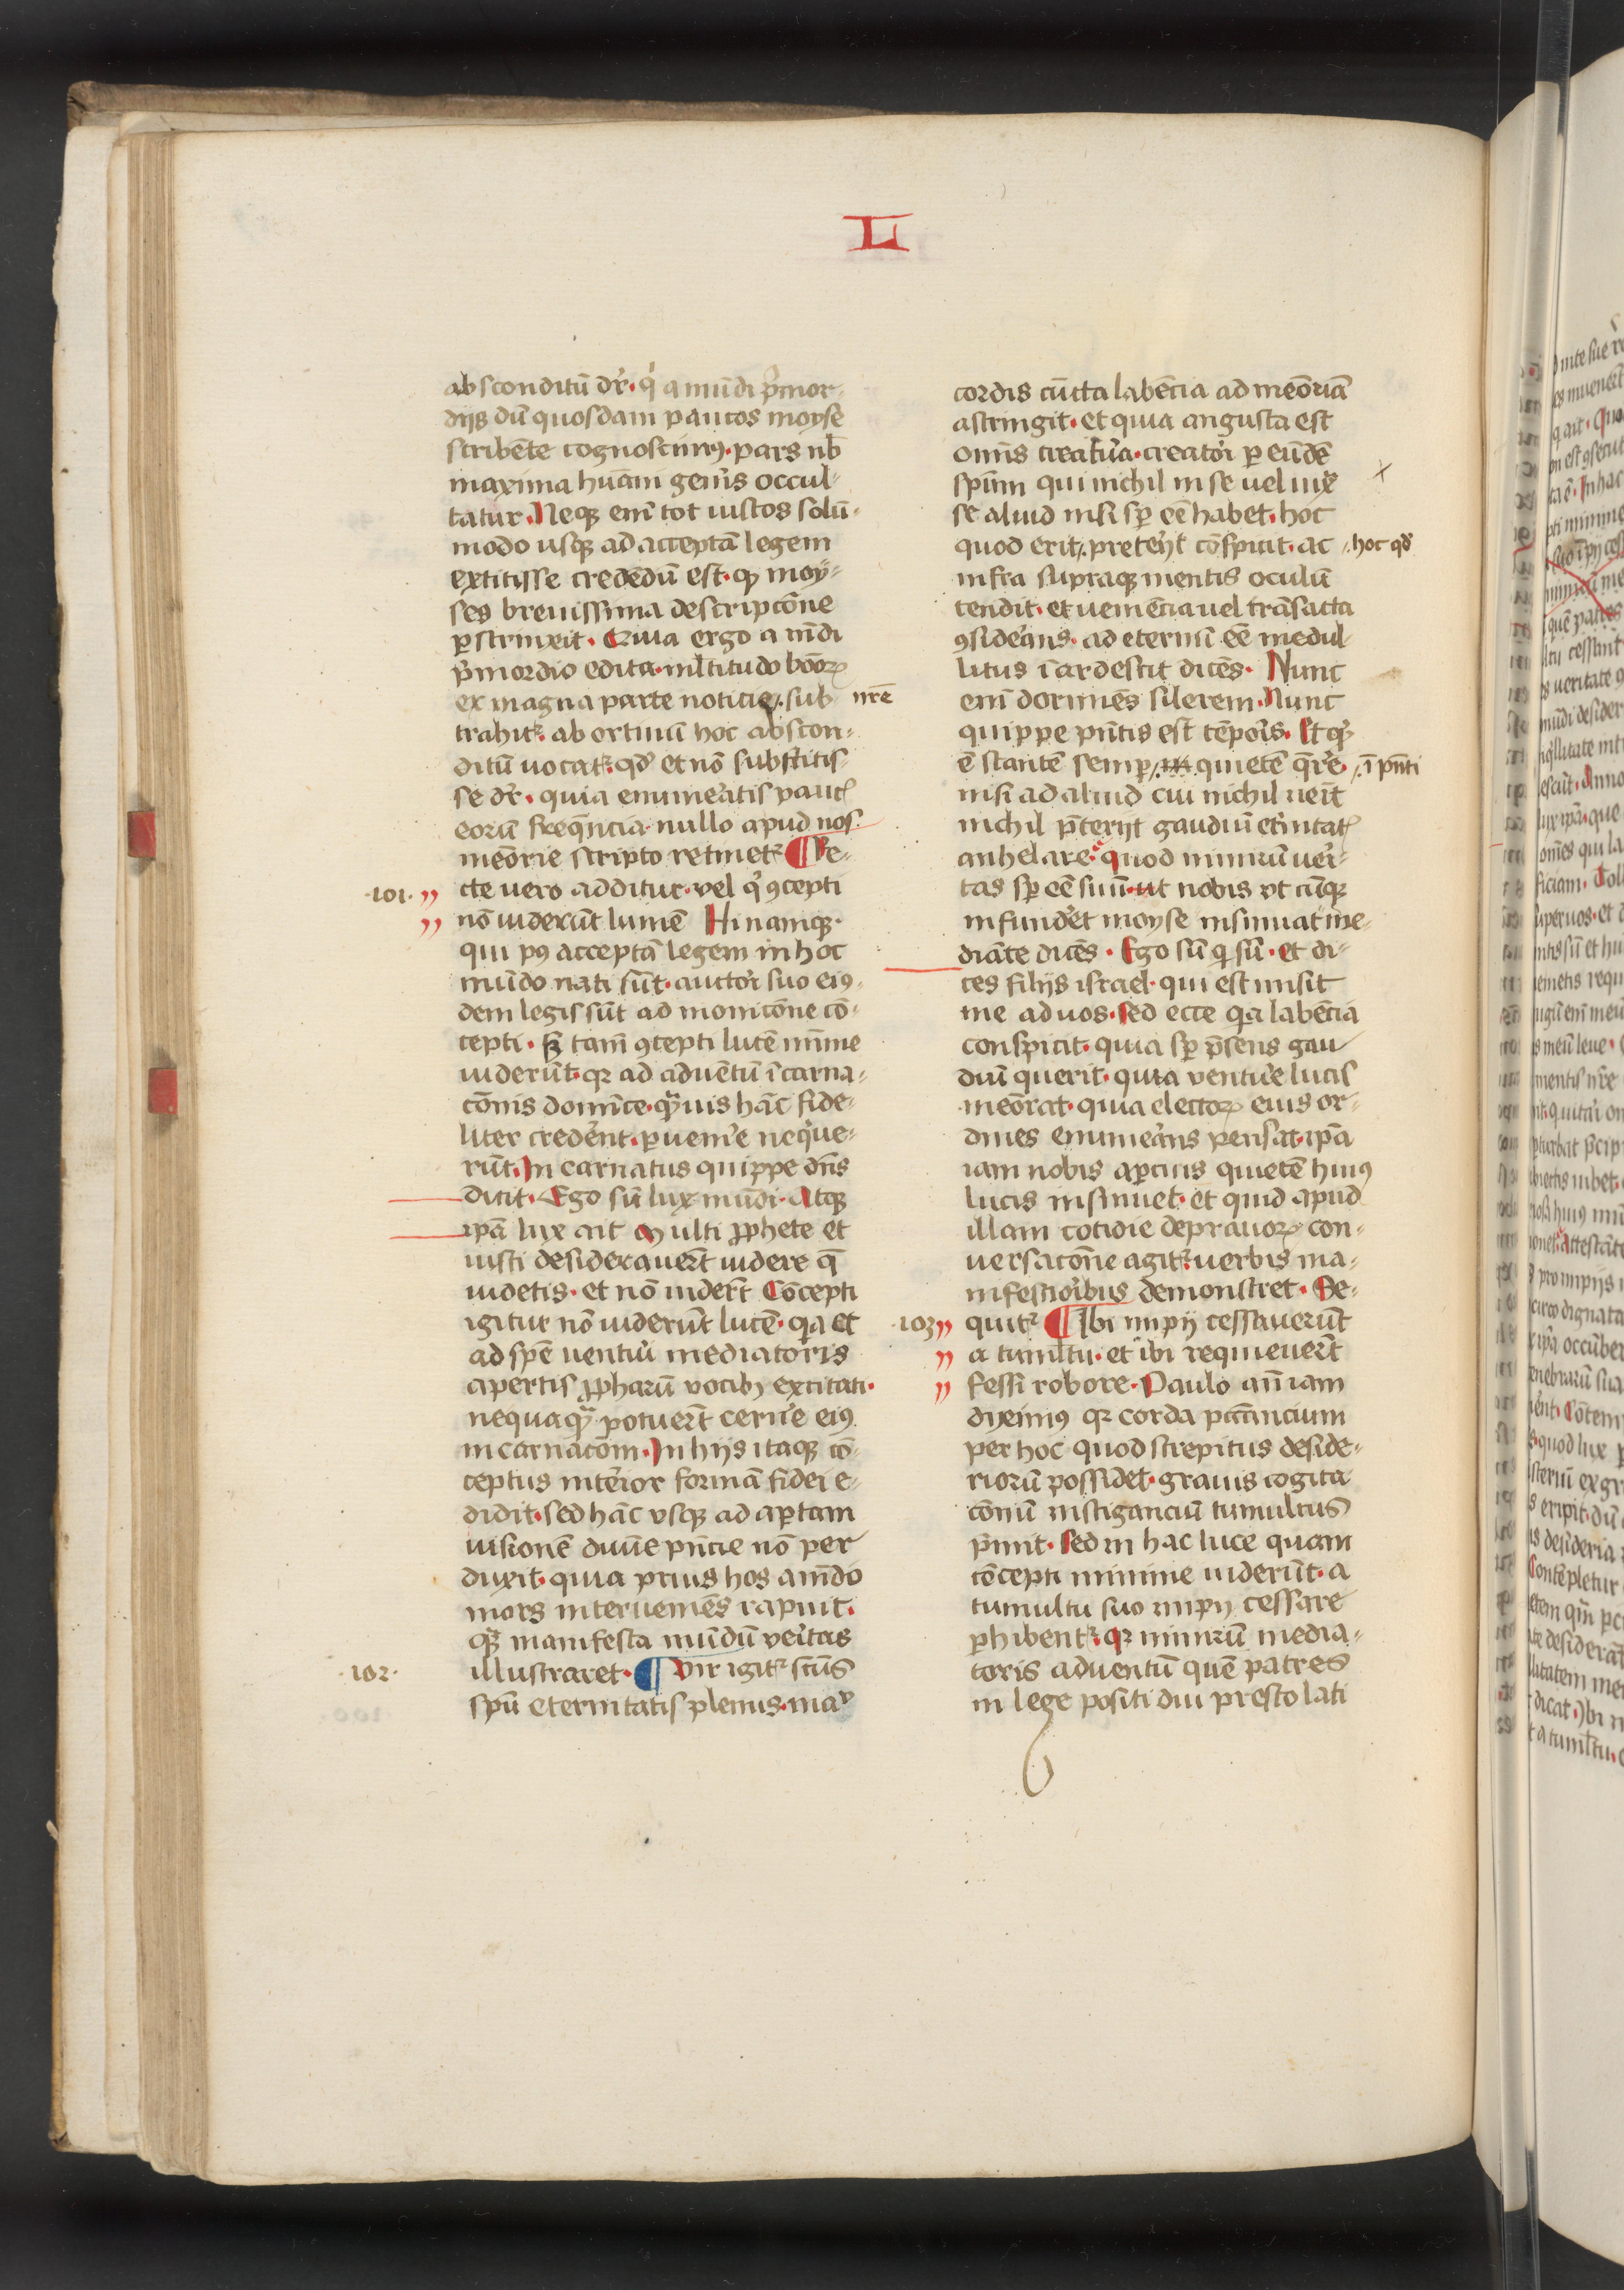 L
absconditū dr̄· q̇ a mūdi pͥmor-
dijs dū quosdam paucos moyse
scribēte cognoscimꝰ· pars nb̄
maxima hūani genīs occul-
tatur· Neqꝫ eī tot iustos solū-
modo usqꝫ ad acceptā legem
extitisse credēdū est· qꝫ moy-
ses breuissima descriptōne
ꝑstrinxit· Quia ergo a mūdi
pͥmordio edita· mltitudo bōoꝝ
ex magna parte noticie /. sub nr̄e
trahitꝛ· abortiuū hoc abscon-
ditū uocatꝛ· qd̄ et nō substitis-
se dr̄· quia enumeͣtis pauc̄
eorū freqn̄cia· nullo apud nos·
meōrie scripto retinetꝛ ¶ Re-
·101· cte uero additur· vel qͥ ꝯcepti
nō uiderūt lumē Hi namqꝫ·
qui pꝰ acceptā legem in hoc
mūdo nati sūt· auctori suo eiꝰ-
dem legis sūt admonicōne cō-
cepti· sꝫ tam̄ ꝯcepti lucē mīme
uiderūt· qꝛ ad aduētū īcarna-
cōnis domīce· qͣuis hāc fide-
liter crederēt· ꝑuenīe neqͥue-
rūt· Incarnatus quippe dn̄s
dicit· Ego sū lux mūdi· Atqꝫ
ipā lux ait Multi ꝓphete et
iusti desiderauerūt uidere q̄
uidetis· et nō uiderūt Cōcepti
igitur nō uiderūt lucē· qͥa et
ad spē uentuͥ mediatoris
apertis ꝓpharū vocibꝫ excitati·
nequaqͣ potuerūt cernͥe eiꝰ
incarnacōm· In hijs itaqꝫ cō-
ceptus interior formā fidei e-
didit· sed hāc usqꝫ ad aꝑtam
uisionē diuīe pn̄cie nō per
duxit· quia prius hos a mūdo
mors interueniēs rapuit·
qͣꝫ manifesta mūdū veritas
·102· illustraret· ¶ Vir igitꝛ scūs
spū eternitatis plenus· ma
cordis cūcta labēcia ad meōriā
astringit· et quia angusta est
omīs creatuͣ· creatori ꝑ eūdē
spīm qui nichil in se uel iuxͣ
se aliud nisi sꝑ eē habet· hoc
quod erit /. preterijt cōspicit· ac /. hoc qd̄
infra supraqꝫ mentis oculū
tendit· et uemēcia uel trāsacta
ꝯsideͣns· ad eternū eē medul-
litus īardescit dicēs· Nunc
eī dormiēs silerem· Nunc
quippe pn̄tis est tēporis· Et qͥ
ē stantē semp /. quietē qͥrͤe /. ī pn̄ti
nisi ad aliud cui nichil ueīt
nichil p̄terijt gaudiū etͥnitat̄
anhelare· quod nimirū ueri-
tas sꝑ eē suū· ut nobis vt cūqꝫ
infunderet moyse insinuat me-
diāte dicēs· Ego sū qͥ sū· et di-
ces filijs israel· qui est misit
me ad uos· Sed ecce qͥa labēcia
conspicit· quia sꝑ p̄sens gau
diū querit· quia venture lucis
meōrat· quia electoꝝ eius or-
dines enumeͣns pensat· ipā
iam nobis aꝑcius quietē huiꝰ
lucis insinuet· et quid apud
illam cotidie deprauoꝝ con-
uersacōne agitꝛ· uerbis ma-
nifestioribus demonstret· Se-
·103· quitꝛ ¶ Ibi impij cessauerūt
a tumltu· et ibi requieuerūt
fessi robore· Paulo an̄ iam
diximꝰ qꝛ corda pctāncium
per hoc quod strepitus deside-
riorū possidet· grauis cogita
cōnū instigancū tumultus
pͥmit· Sed in hac luce quam
cōcepti minime uiderūt· a
tumultu suo impij cessare
ꝑhibentꝛ· qꝛ nimirū media-
toris aduentū quē patres
in lege positi diu prestolati